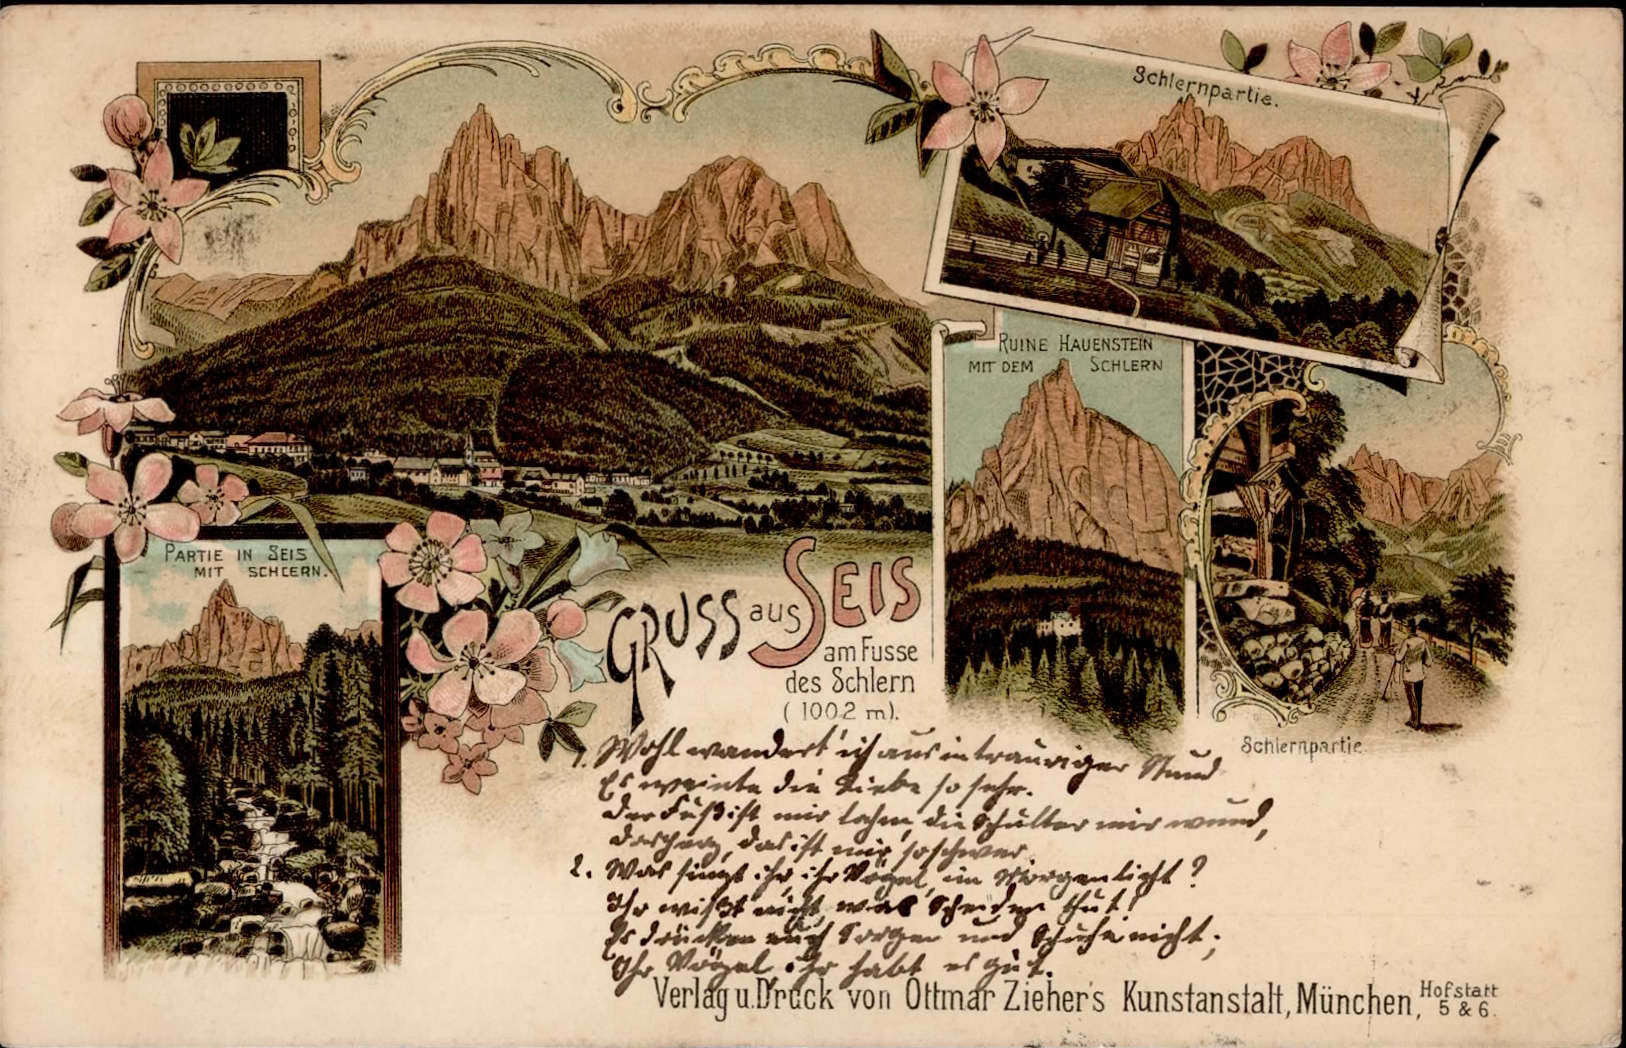 Schlernpartie.
RUINE HAUENSTEIN
MIT DEM SCHLERN
PARTIE IN SEIS
MIT SCHLERN.
GRUSS aus SEIS
am Fusse
des Schlern
(1002 m).
Schlernpartie
1. Wohl wandert' ich aus in trauriger Stund
Es weinte die Liebe so sehr.
Der Fuß ist mir lahm, die Schulter mir wund,
Das Herz, das ist mir so schwer.
2. Was singt ihr ihr Vögel, im Morgenlicht?
Ihr wißt nicht, was Scheiden thut!
Es drücken euch Sorgen und Schuhe nicht;
Ihr Vögel, ihr habt es gut.
Verlag u. Druck von Ottmar Zieher's Kunstanstalt, München, Hofstatt 5 & 6.